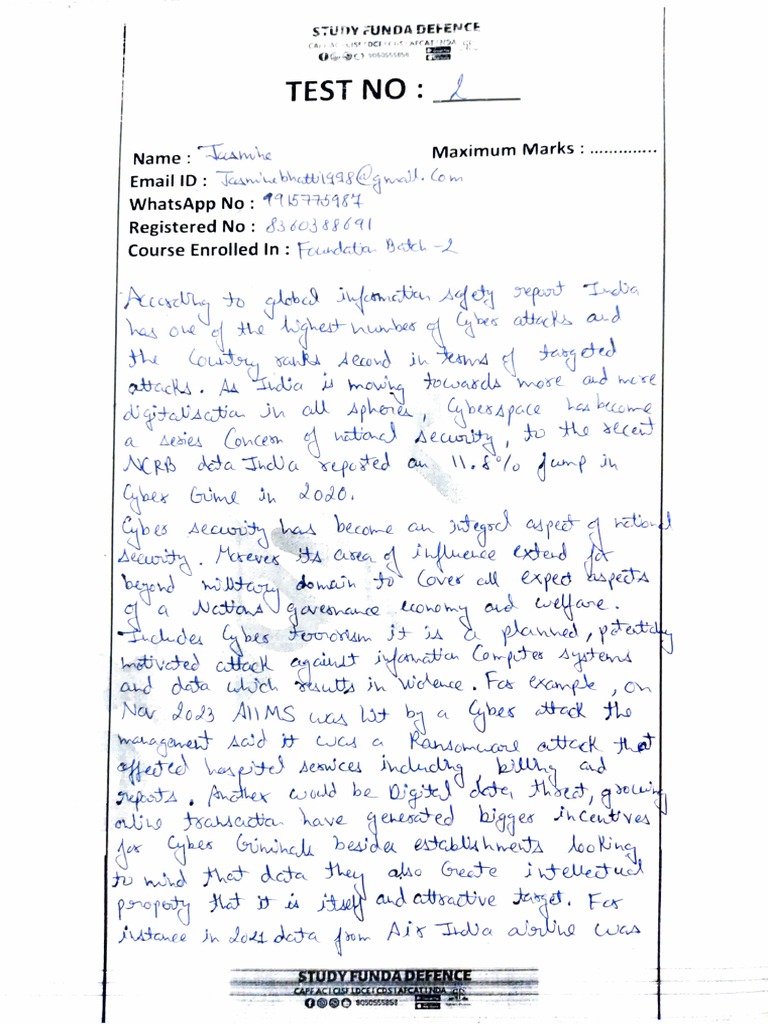 STUDY FUNDA DEFENCE
CAPF AC | CISF LDCE | CDS | AFCAT | NDA
9050555858
TEST NO : 2
Name : Jasmine
Maximum Marks : .............
Email ID : Jasminebhatti1998@gmail.com
WhatsApp No : 9915775987
Registered No : 8360388691
Course Enrolled In : Foundation Batch -2
According to global information safety report India
has one of the highest number of Cyber attacks and
the Country ranks second in terms of targeted
attacks. As India is moving towards more and more
digitalisation in all spheres, Cyberspace has become
a series Concern of national security, to the recent
NCRB data India reported an 11.8% jump in
Cyber Crime in 2020.
Cyber security has become an integral aspect of national
security. Morever its area of influence extend far
beyond military domain to Cover all expect aspects
of a Nations governance economy and welfare.
Includes Cyber terrorism it is a planned, potentialy
motivated attack against information Computer systems
and data which results in violence. For example, on
Nov 2023 AIIMS was hit by a Cyber attack the
management said it was a Ransomware attack that
affected hospital services including billing and
reports. Another would be Digital data threat, growing
online transaction have generated bigger incentives
for Cyber Criminals besides establishments looking
to mind that data they also Create intellectual
property that it is itself and attractive target. For
instance in 2021 data from Air India airline was
STUDY FUNDA DEFENCE
CAPF AC | CISF LDCE | CDS | AFCAT | NDA
9050555858